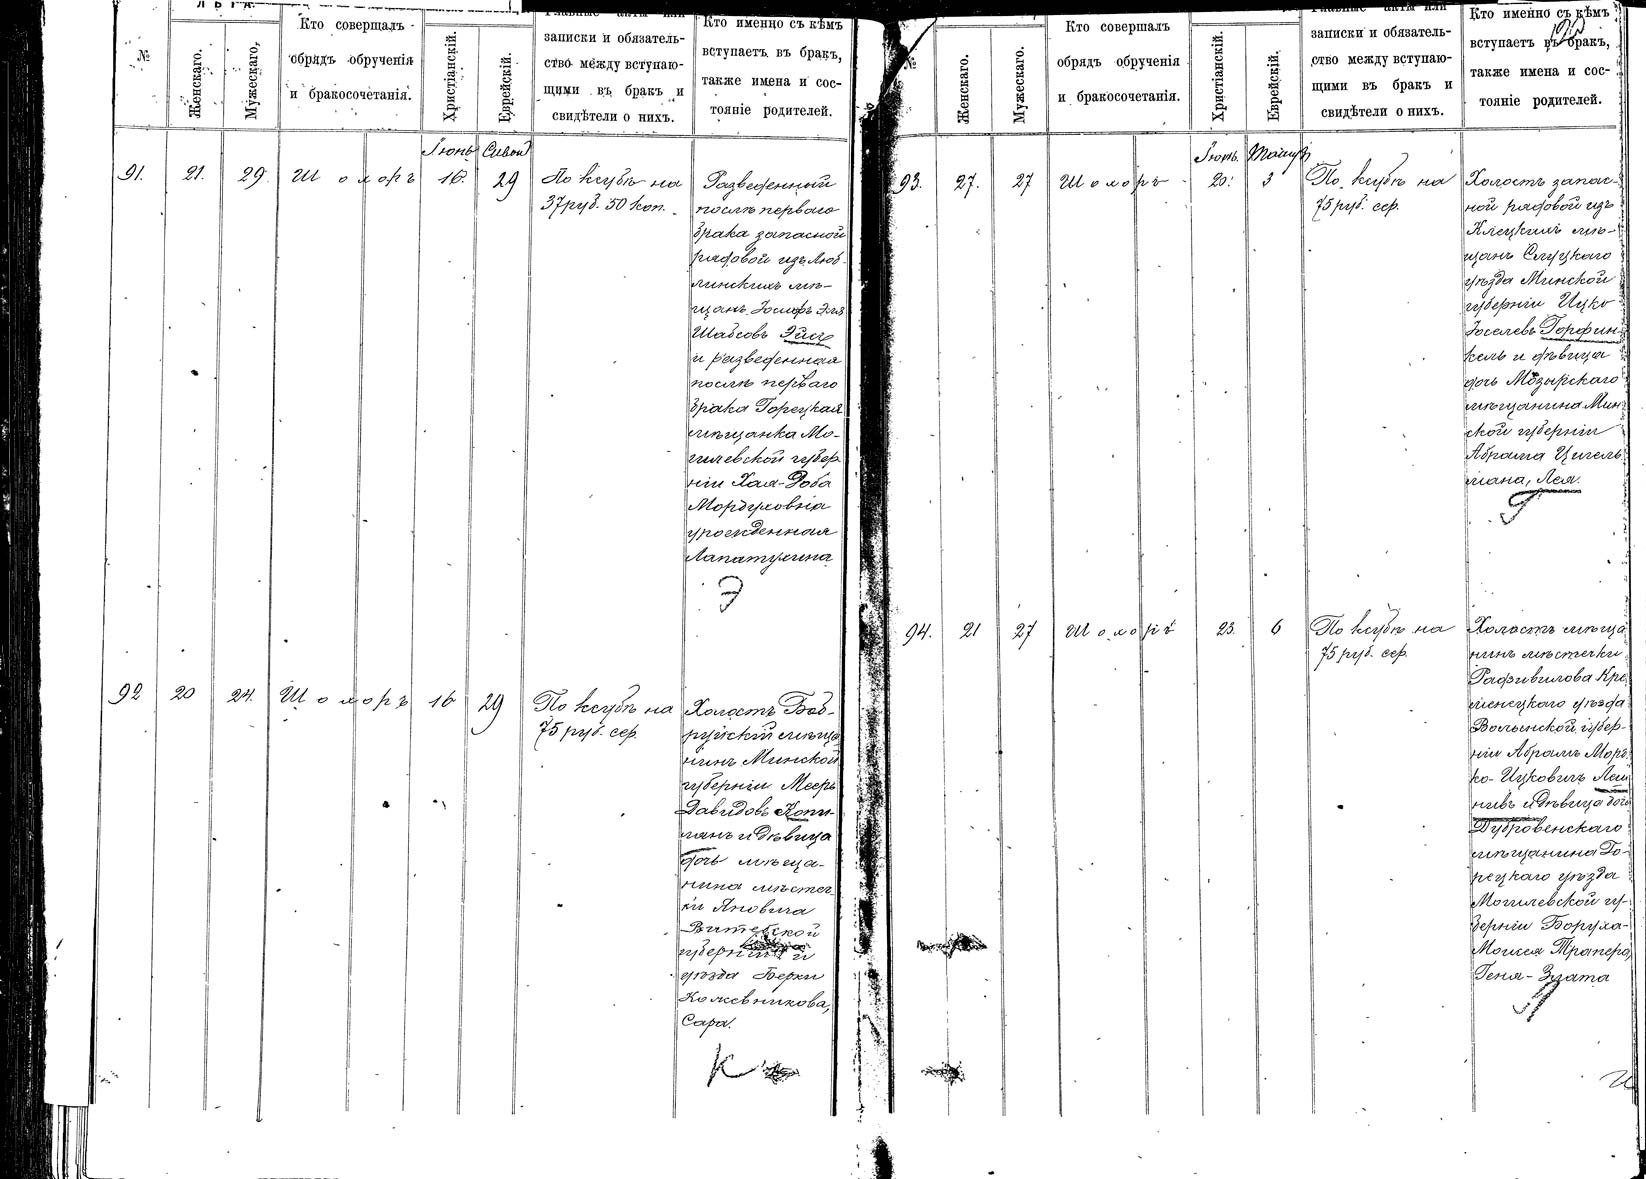 ЛѢТА.
№
Женскаго.
Мужескаго.
Кто совершалъ
обрядъ обрученія
и бракосочетанія.
Христіанскій.
Еврейскій.
Главные акты или
записки и обязатель-
ство между вступаю-
щими въ бракъ и
свидѣтели о нихъ.
Кто именно съ кѣмъ
вступаетъ въ бракъ,
также имена и сос-
тояніе родителей.
Іюнь Сивонъ
91. 21. 29. Шохоръ 16. 29
По ксубѣ на
37 руб. 50 коп.
Разведенный
послѣ перваго
брака запасной
рядовой изъ Люб-
линскихъ мѣ-
щанъ Іосифъ Эля
Шабсовъ
и разведенная
послѣ перваго
брака Горецкая
мѣщанка Мо-
гилевской губер
ніи Хая-Доба
Мордуховна
урожденная
Лапатухина
Э
92 20 24. Шохоръ 16 29
По ксубѣ на
75 руб. сер.
Холостъ Боб-
руйскій мѣща
нинъ Минской
губерніи Мееръ
Давидовъ Копи-
ланъ и дѣвица
дочь мѣща-
нина мѣстеч
ки Яновича
Витебской
губерніи и
уѣзда Берки
Кожевникова,
Сара.
К
№
Женскаго.
Мужескаго.
Кто совершалъ
обрядъ обрученія
и бракосочетанія.
Христіанскій.
Еврейскій.
Главные акты или
записки и обязатель-
ство между вступаю-
щими въ бракъ и
свидѣтели о нихъ.
Кто именно съ кѣмъ
вступаетъ въ бракъ,
также имена и сос-
тояніе родителей.
Іюнь. Тамузъ
93. 27. 27 Шохоръ 20. 3
По ксубѣ на
75 руб. сер.
Холостъ запас-
ной рядовой изъ
Клецкихъ мѣ-
щанъ Слуцкаго
уѣзда Минской
губерніи Ицко
Іоселевъ Горфин-
кель и дѣвица
дочь Мозырскаго
мѣщанина Мин
ской губерніи
Абрама Цигель
мана, Лея.
Г
94. 21 27 Шохоръ 23. 6
По ксубѣ на
75 руб. сер.
Холостъ мѣща
нинъ мѣстечки
Радзивилова Кре
менецкаго уѣзда
Волынской губер-
ніи Абрамъ Морд
ко-Ицковичъ
и дѣвица дочь
Дубровенскаго
мѣщанина Го-
рецкаго уѣзда
Могилевской гу-
берніи Боруха-
Моисея Трапера,
Геня-Злата